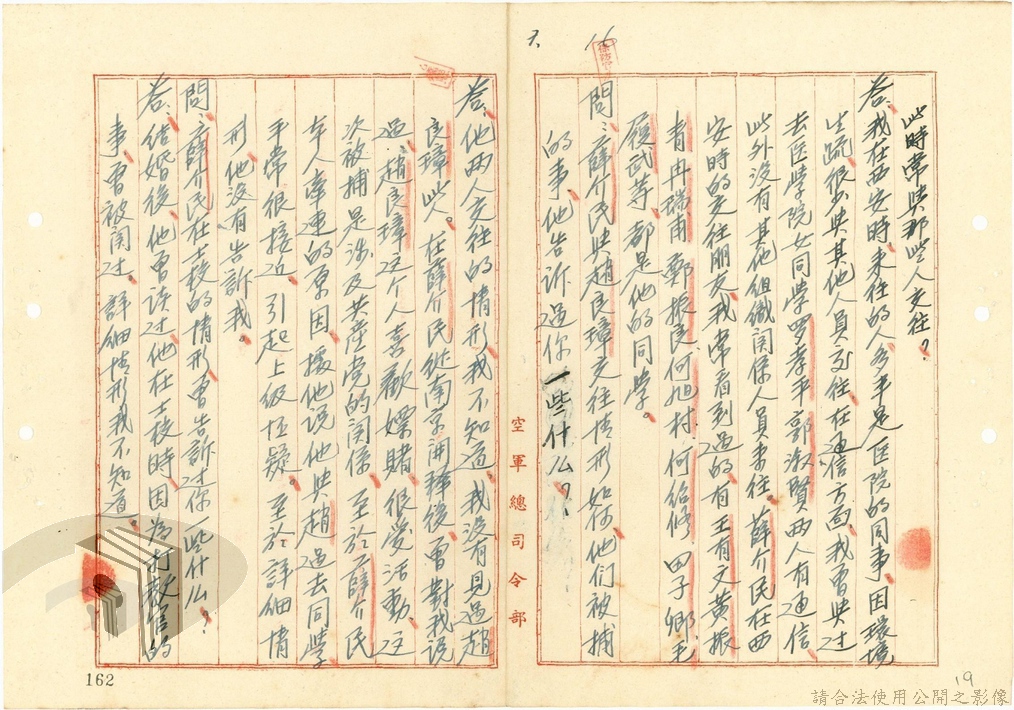 此時常與那些人交往？
答：我在西安時，來往的人多半是医院的同事，因環境
生疏，很少與其他人員交往，在通信方面，我曾與过
去医學院女同學罗孝平郭淑賢两人有通信
此外没有其他组織関係人員來往。薛介民在西
安時的交往朋友，我常看到過的，有王有文黄振
 冉瑞甫 鄭振民 何旭村 何紹修 田子卿 毛
履武等，都是他的同學。
問：薛介民與趙良璋交往情形如何他们被捕
的事，他告诉過你一些什么？
答：他两人交往的情形，我不知道，我没有見過趙
良璋此人。在薛介民從南京開釋後，曾對我说
過，趙良璋这个人喜歡嫖賭，很受活動，这
次被捕是涉及共産党的関係，至於薛介民
本人牵連的原因，據他说他與趙過去同學
平常很接近，引起上级怀疑。至於詳细情
形他没有告訴我。
問：薛介民在士校的情形，曾告訴过你一些什么？
答：结婚後，他曾谈过，他在士校時，因為打教官的
事，曾被関过。詳细情形我不知道。
空軍總司令部
162
19
請合法使用公開之影像